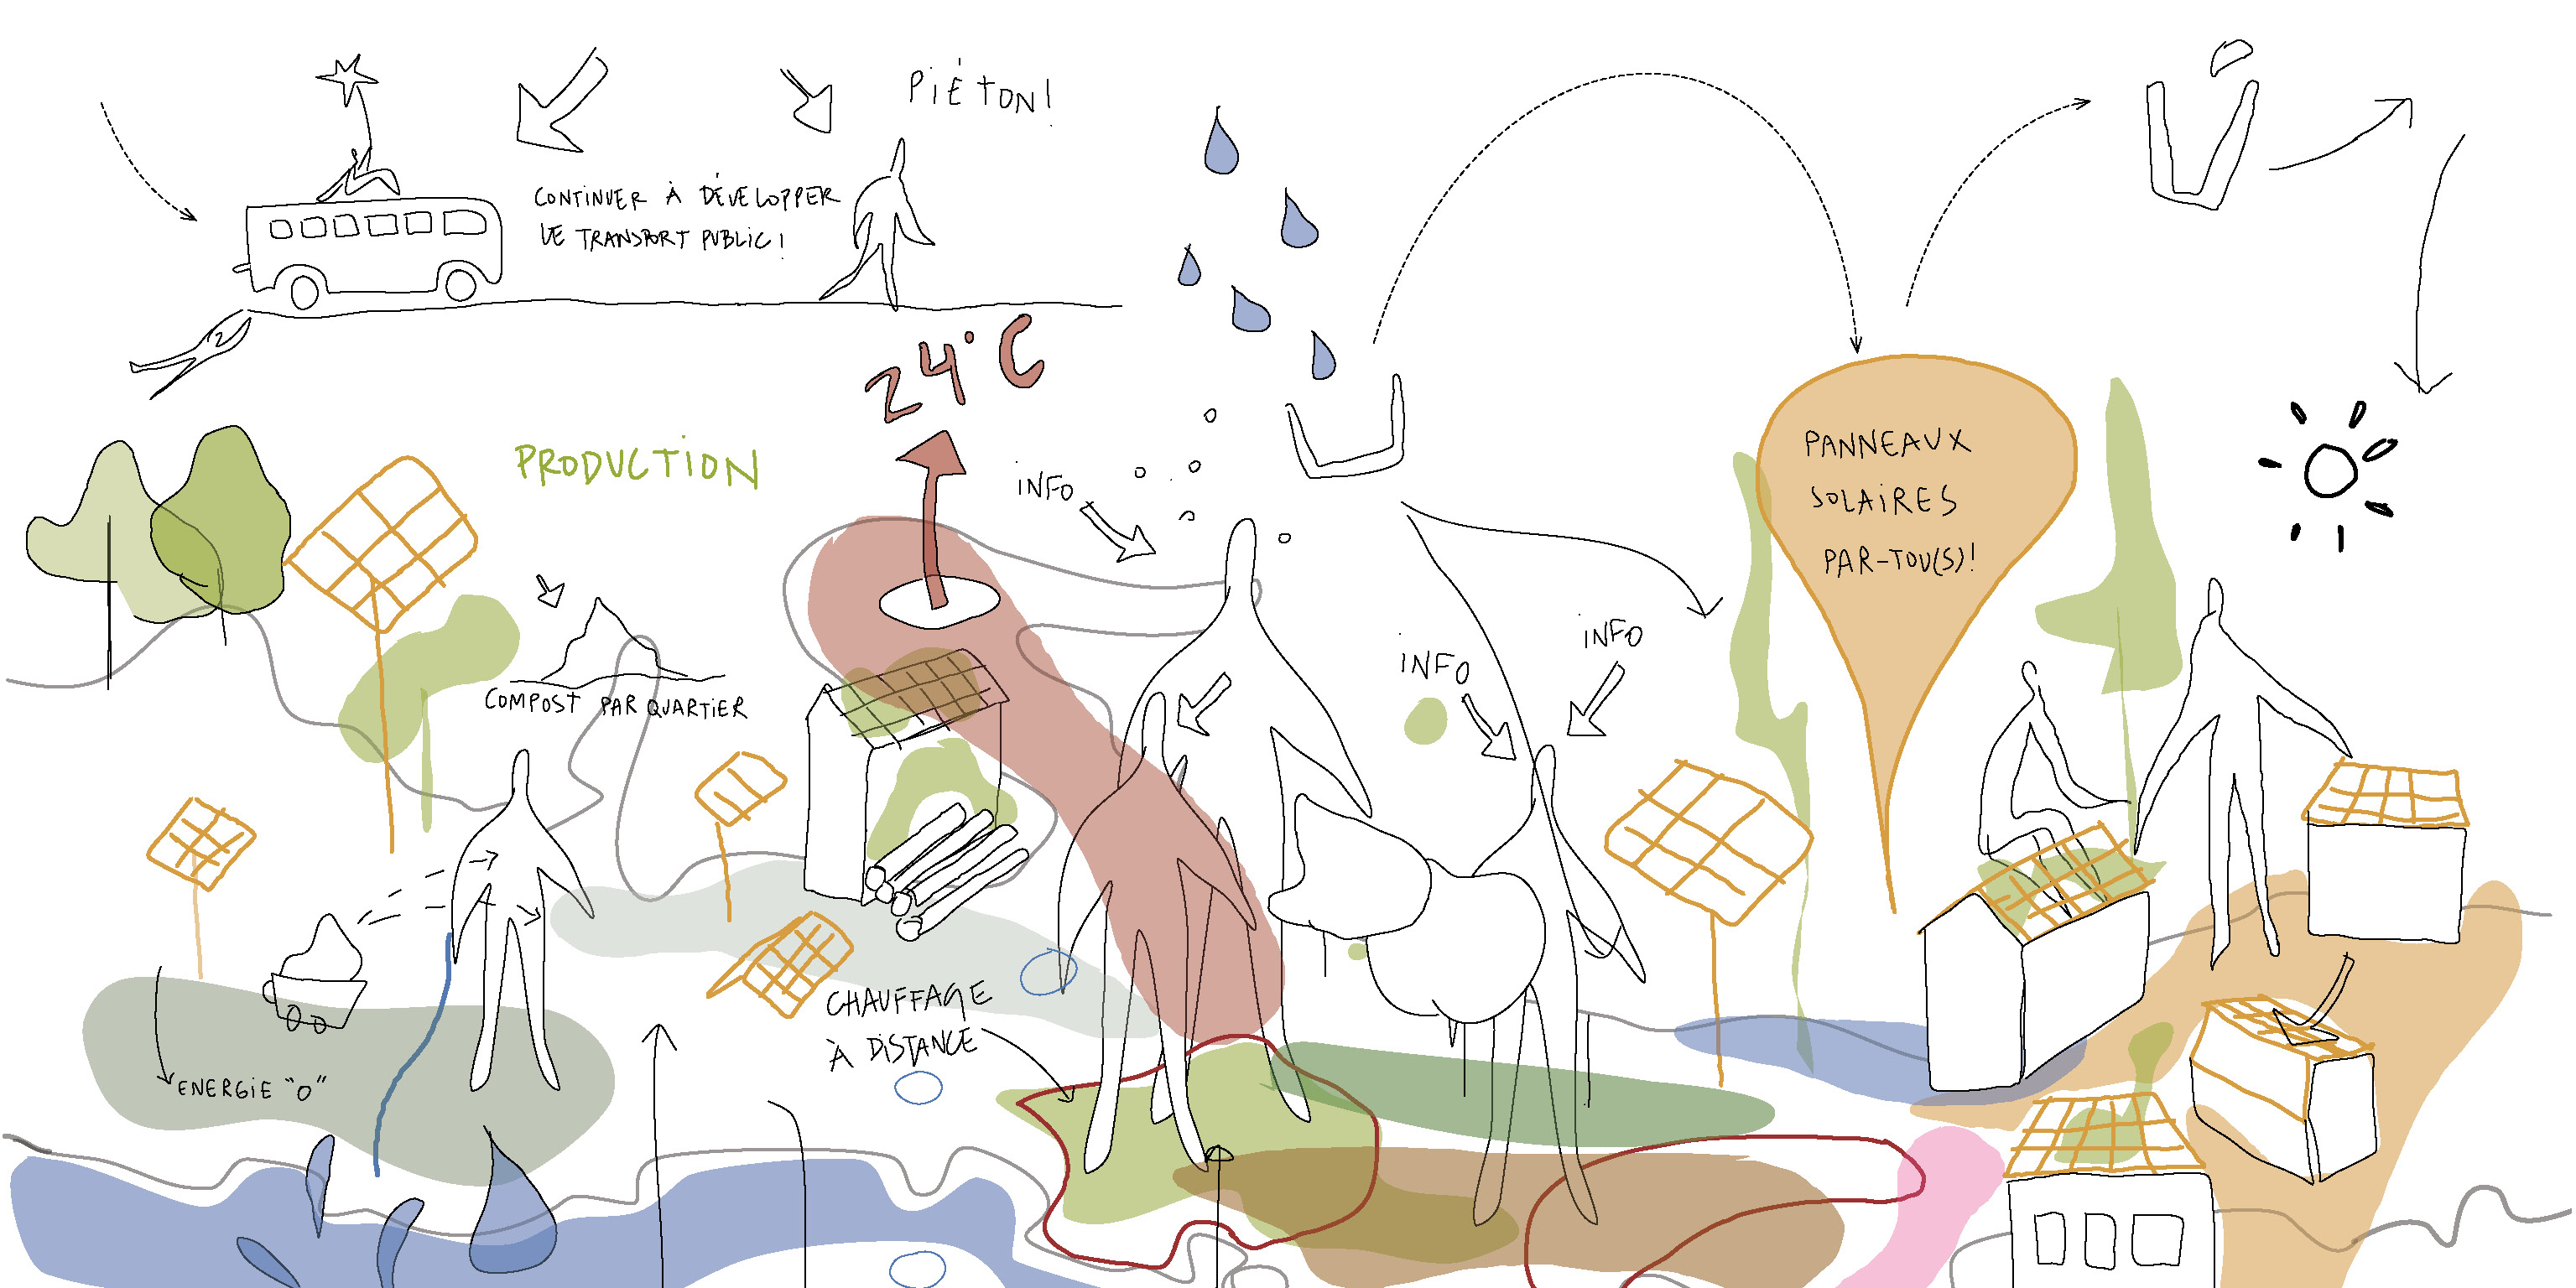 PIÉTON!
CONTINUER À DÉVELOPPER
LE TRANSPORT PUBLIC!
24°C
PRODUCTION
INFO
PANNEAUX
SOLAIRES
PAR-TOU(S)!
INFO
INFO
COMPOST PAR QUARTIER
CHAUFFAGE
À DISTANCE
ENERGIE "0"